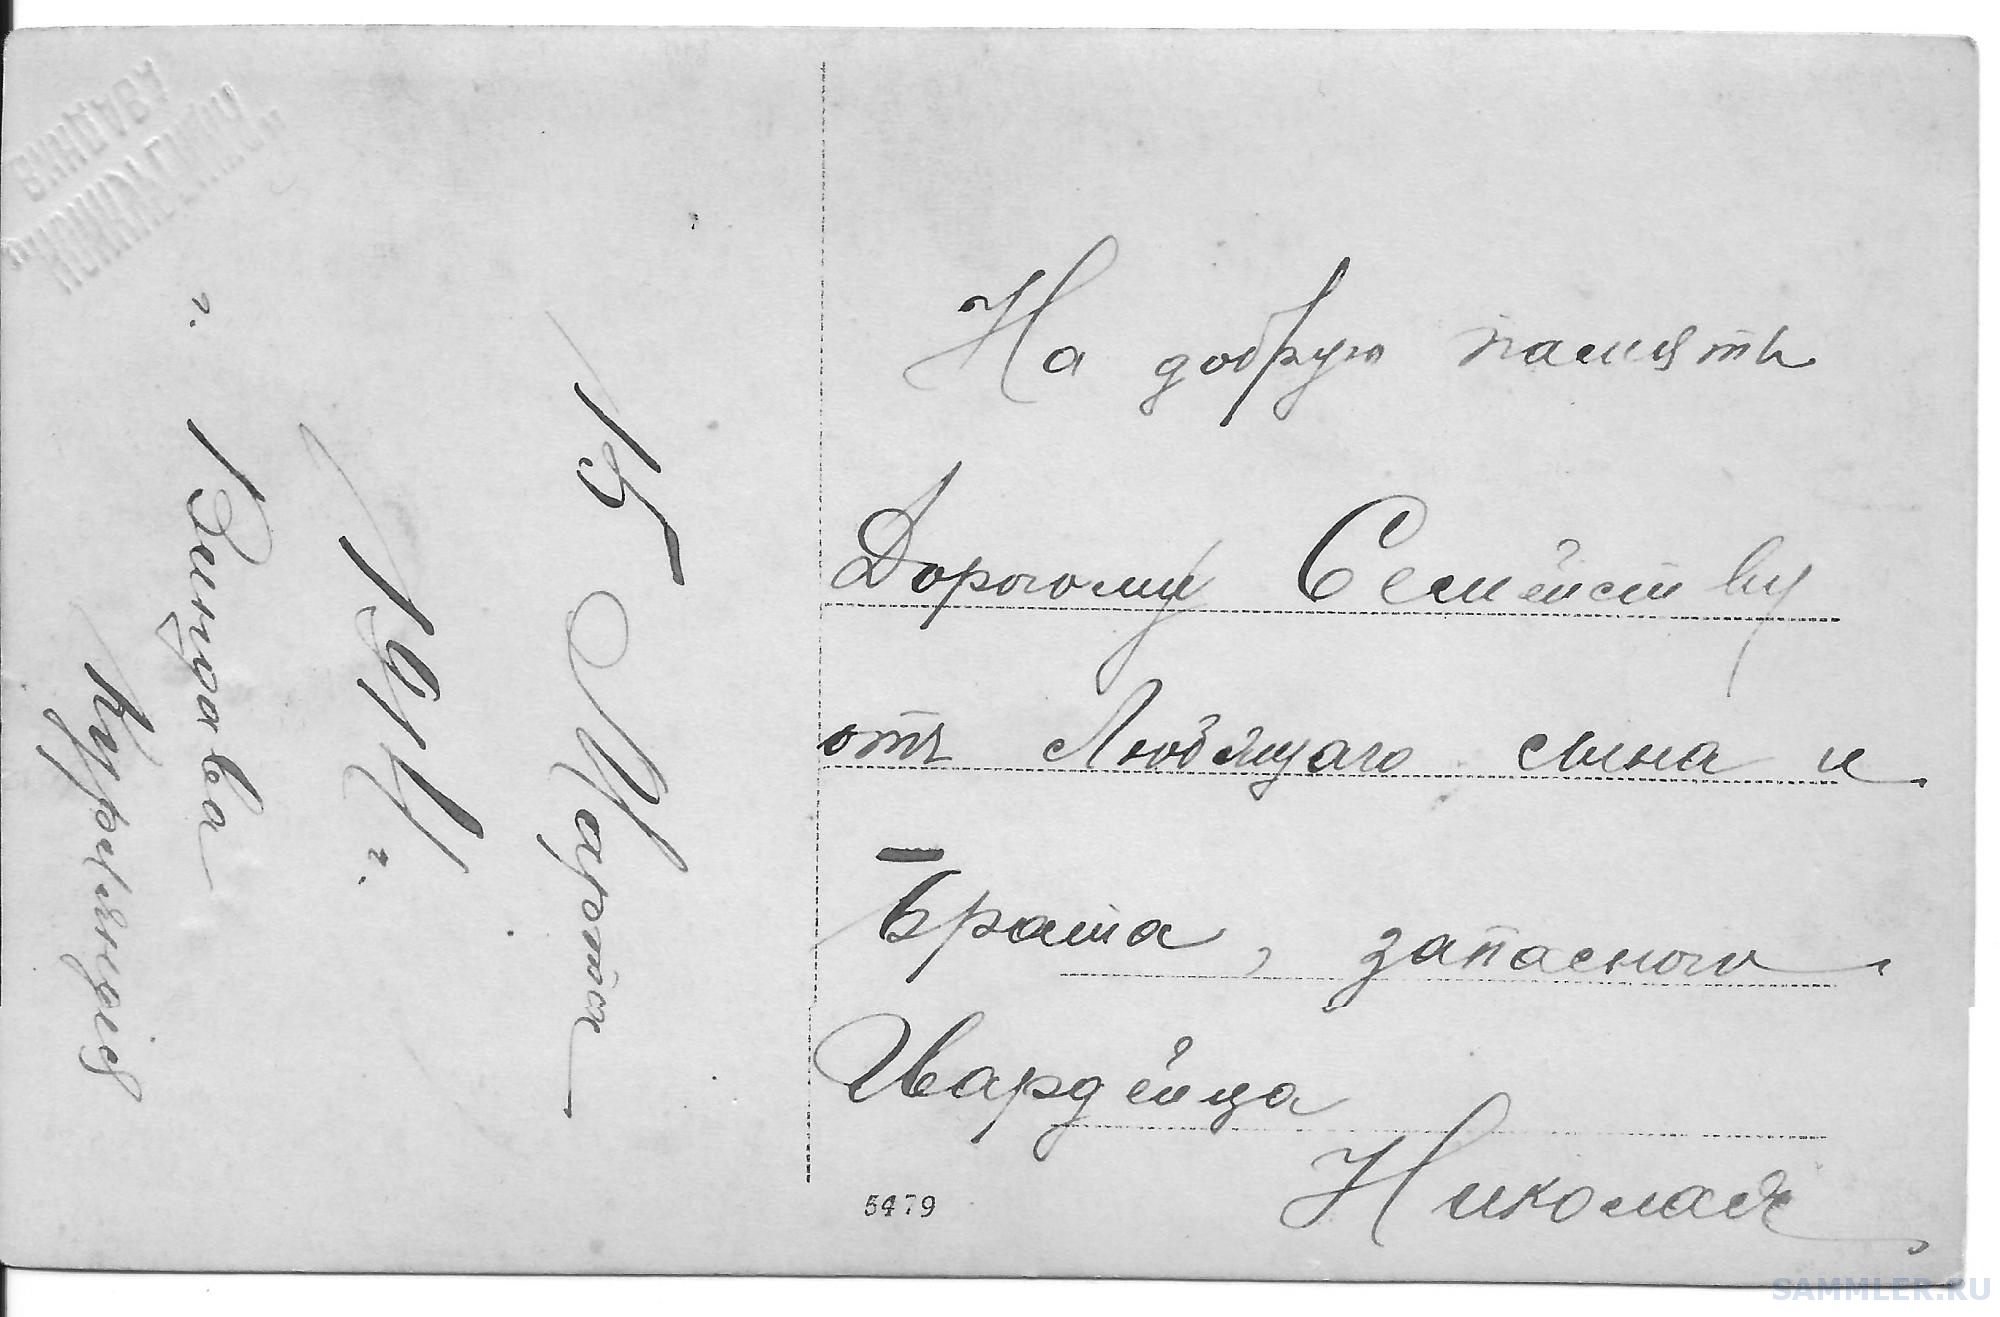 На добрую память
Дорогому Семейству
отъ Любящаго сына и
Брата, запаснаго
Гвардейца
Николая
15 Марта
1914 г.
г. Виндава
Курляндія
5479
ВИНДАВА
SAMMLER.RU